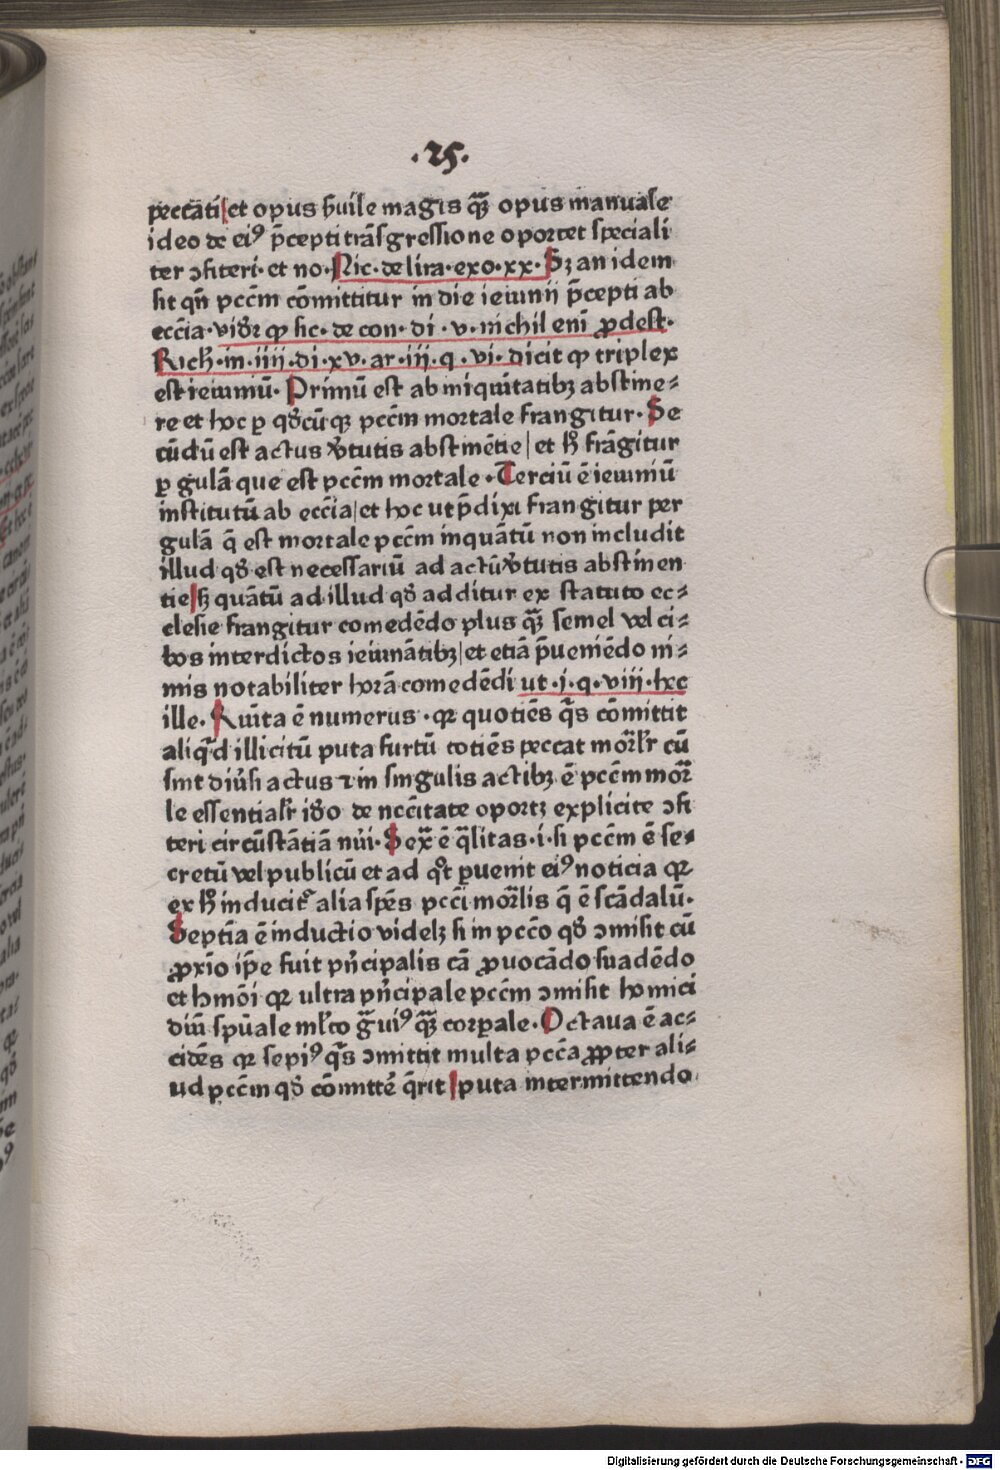 .25.
peccati|et opus s̄uile magis qm̄ opus manuale
ideo de ei⁹ p̄cepti trāsgressione oportet speciali
ter ↄfiteri· et no·Nic·de lira·exo·xx·Sꝫ an idem
sit qn̄ pccm̄ cōmittitur in die ieiunii p̄cepti ab
eccīa·vidr̄ ꝙ sic·de con·di·v·nichil eni ꝓdest·
Rich·in·iiii·di·xv·ar·iii·q·vi·dicit ꝙ triplex
est ieiuniū·Primū est ab iniquitatibꝫ abstine⸗
re et hoc ꝑ qdcūqꝫ pccm̄ mortale frangitur·Se
cūdū est actus v̄tutis abstinētie|et h̄ frāgitur
ꝑ gulā que est pccm̄ mortale·Terciū ē ieiuniū
institutū ab eccīa|et hoc ut p̄dixi frangitur per
gulā q̄ est mortale pccm̄ inquātū non includit
illud qd̄ est necessariū ad actū v̄tutis abstinen
tie|sꝫ quātū ad illud qd̄ additur ex statuto ec⸗
clesie frangitur comedēdo plus qm̄ semel vel ci⸗
bos interdictos ieiunātibꝫ|et etiā p̄ueniēdo ni⸗
mis notabiliter horā comedēdi ut·i·q·viii·hec
ille·Quīta ē numerus·qꝛ quotiēs q̄s cōmittit
aliq̄d illicitū puta furtū totiēs peccat morl̄r cū
sint diūsi actus ⁊ in singulis actibꝫ ē pccm̄ morā
le essentialr̄ iḋo de nccītate oportꝫ explicite ↄfi
teri circūstātiā nūi·Sexā ē q̄litas·i·si pccm̄ ē se⸗
cretū vel publicū et ad q̊t ꝑuenit ei⁹ noticia qꝛ
ex h̄ inducit᷑ alia spēs pccī morl̄is q̄ ē scādalū·
Septīa ē inductio videlꝫ si in pccō qd̄ ↄmisit cū
ꝓxīo ip̄e fuit pn̄cipalis cā ꝓuocādo suadēdo
et hmōi qꝛ ultra pn̄cipale pccm̄ ↄmisit homici
diū spūale ml̄to ḡui⁹ qm̄ corꝑale·Octaua ē ac⸗
cidēs qꝛ sepi⁹ q̄s ↄmittit multa pccā ꝓpter ali⸗
ud pccm̄ qd̄ cōmittē q̄rit|puta intermittendo
Digitalisierung gefördert durch die Deutsche Forschungsgemeinschaft - DFG